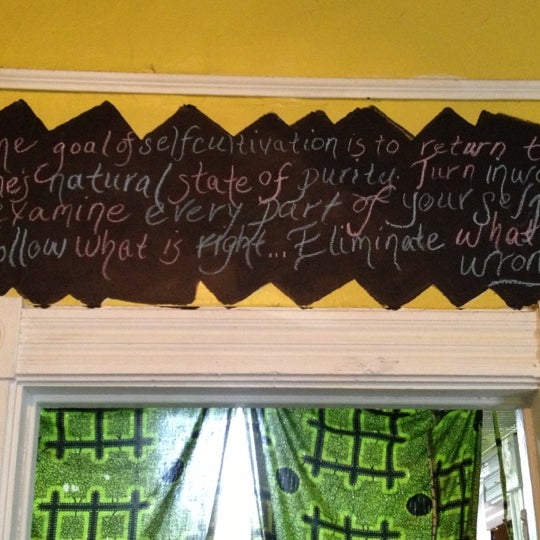 he goal of self cultivation is to return t
ne's natural state of purity. Turn inwa
examine every part of your self
ollow what is right... Eliminate what
wron